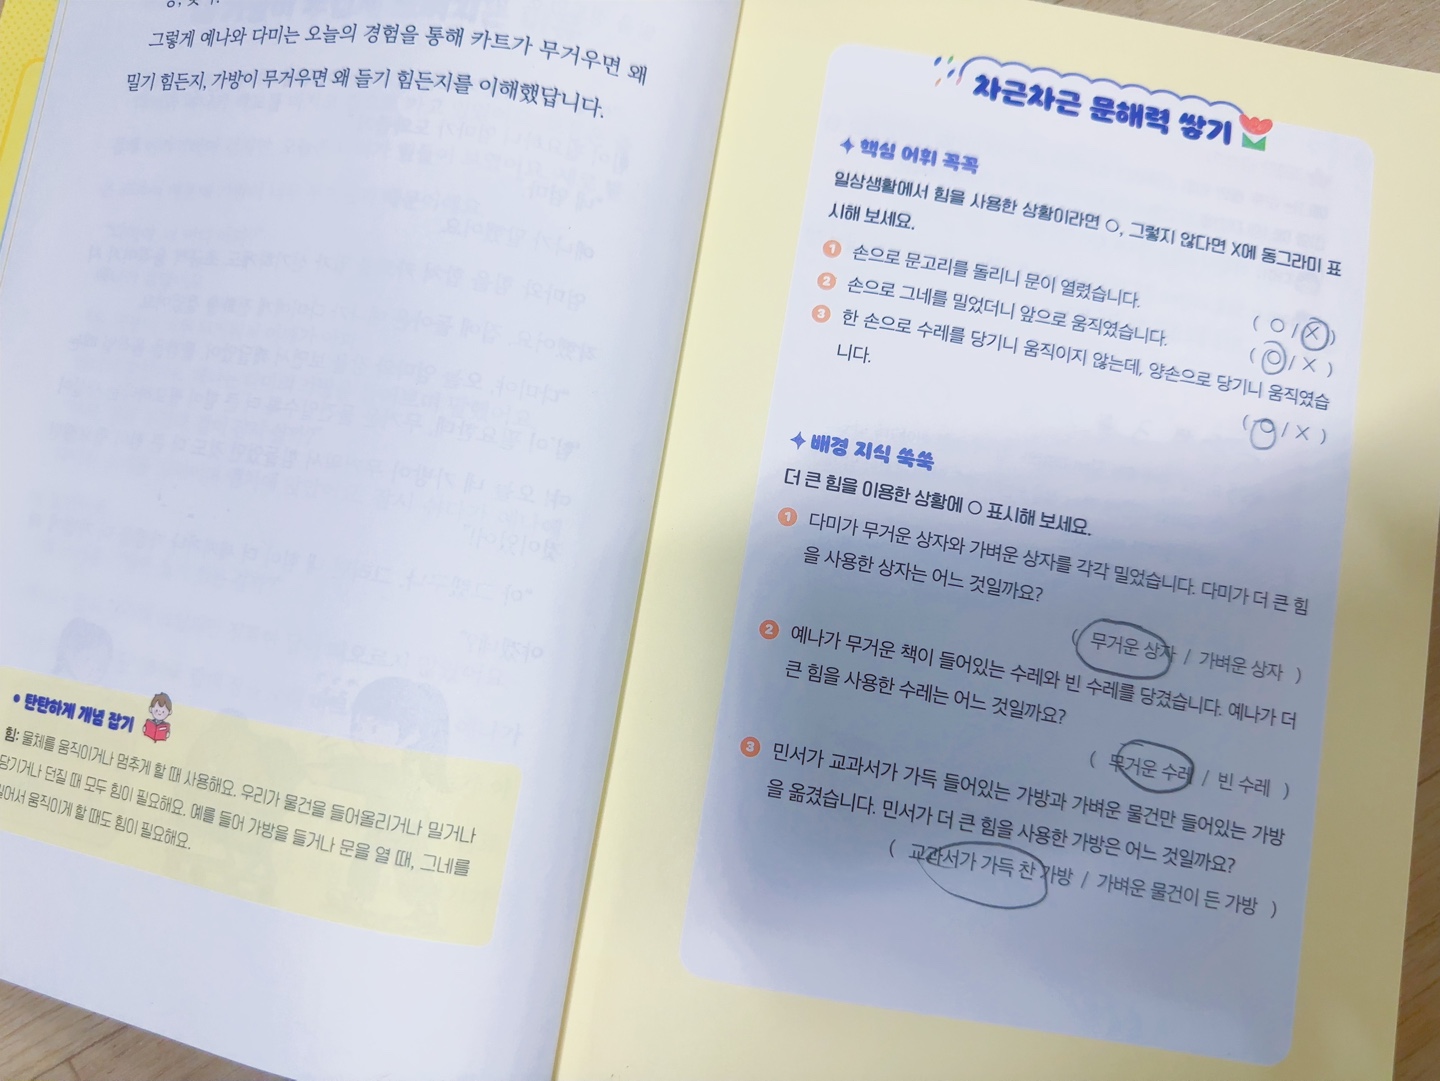 그렇게 예나와 다미는 오늘의 경험을 통해 카트가 무거우면 왜
밀기 힘든지, 가방이 무거우면 왜 들기 힘든지를 이해했답니다.
탄탄하게 개념 잡기
힘: 물체를 움직이거나 멈추게 할 때 사용해요. 우리가 물건을 들어올리거나 밀거나
당기거나 던질 때 모두 힘이 필요해요. 예를 들어 가방을 들거나 문을 열 때, 그네를
밀어서 움직이게 할 때도 힘이 필요해요.
차근차근 문해력 쌓기
핵심 어휘 꼭꼭
일상생활에서 힘을 사용한 상황이라면 ○, 그렇지 않다면 X에 동그라미 표
시해 보세요.
1 손으로 문고리를 돌리니 문이 열렸습니다.
( ○ / X )
2 손으로 그네를 밀었더니 앞으로 움직였습니다.
( ○ / X )
3 한 손으로 수레를 당기니 움직이지 않는데, 양손으로 당기니 움직였습
니다.
( ○ / X )
배경 지식 쑥쑥
더 큰 힘을 이용한 상황에 ○ 표시해 보세요.
1 다미가 무거운 상자와 가벼운 상자를 각각 밀었습니다. 다미가 더 큰 힘
을 사용한 상자는 어느 것일까요?
( 무거운 상자 / 가벼운 상자 )
2 예나가 무거운 책이 들어있는 수레와 빈 수레를 당겼습니다. 예나가 더
큰 힘을 사용한 수레는 어느 것일까요?
( 무거운 수레 / 빈 수레 )
3 민서가 교과서가 가득 들어있는 가방과 가벼운 물건만 들어있는 가방
을 옮겼습니다. 민서가 더 큰 힘을 사용한 가방은 어느 것일까요?
( 교과서가 가득 찬 가방 / 가벼운 물건이 든 가방 )